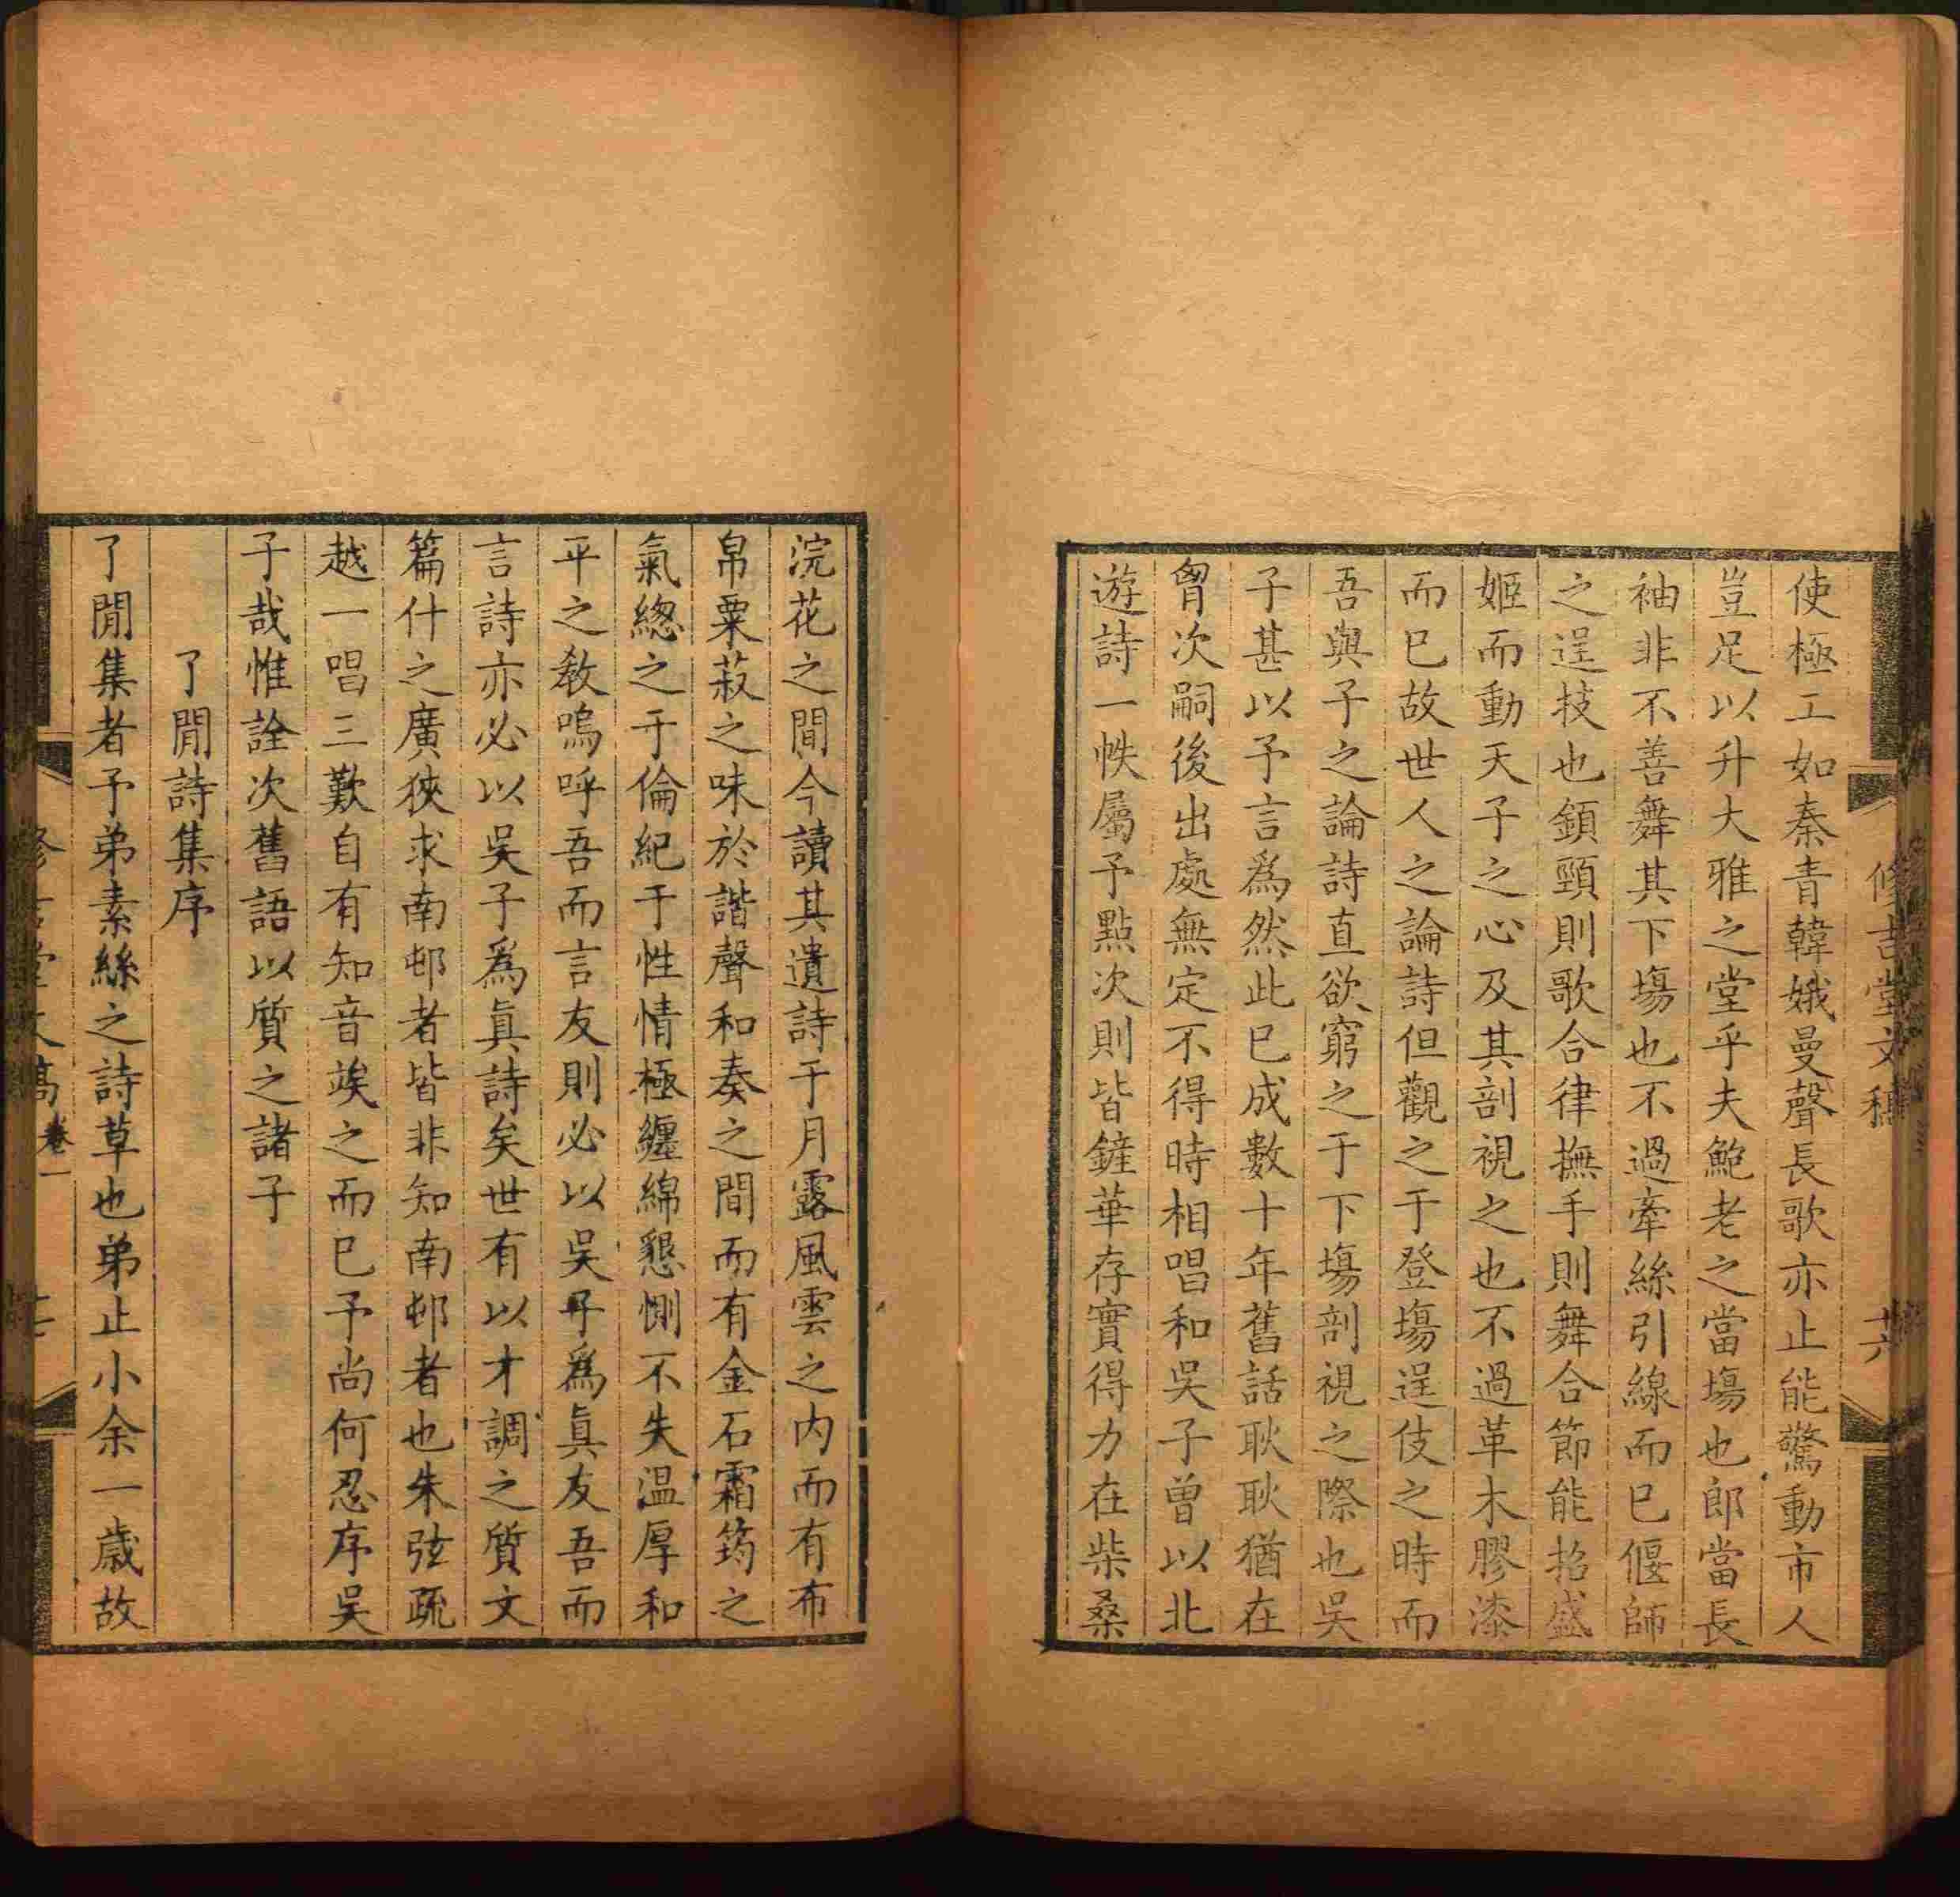 修吉堂文稿
廿六
使極工如秦青韓娥曼聲長歌亦止能驚動市人
豈足以升大雅之堂乎夫鮑老之當場也郎當長
袖非不善舞其下塲也不過牽絲引線而已偃師
之逞技也顉頤則歌合律撫手則舞合節能招盛
姬而動天子之心及其剖視之也不過革木膠漆
而已故世人之論詩但觀之于登塲逞伎之時而
吾與子之論詩直欲窮之于下塲剖視之際也吳
子甚以予言爲然此已成數十年舊話耿耿猶在
胷次嗣後出處無定不得時相唱和吳子曾以北
遊詩一帙屬予點次則皆鏟華存實得力在柴桑
浣花之間今讀其遺詩于月露風雲之内而有布
帛粟菽之味於諧聲和奏之間而有金石霜筠之
氣緫之于倫紀于性情極纏綿懇惻不失温厚和
平之敎嗚呼吾而言友則必以吳子爲眞友吾而
言詩亦必以吳子爲眞詩矣世有以才調之質文
篇什之廣狹求南邨者皆非知南邨者也朱弦疏
越一唱三歎自有知音竢之而已予尚何忍序吳
子哉惟詮次舊語以質之諸子
了閒詩集序
了閒集者予弟素絲之詩草也弟止小余一歲故
修吉堂文稿
卷一